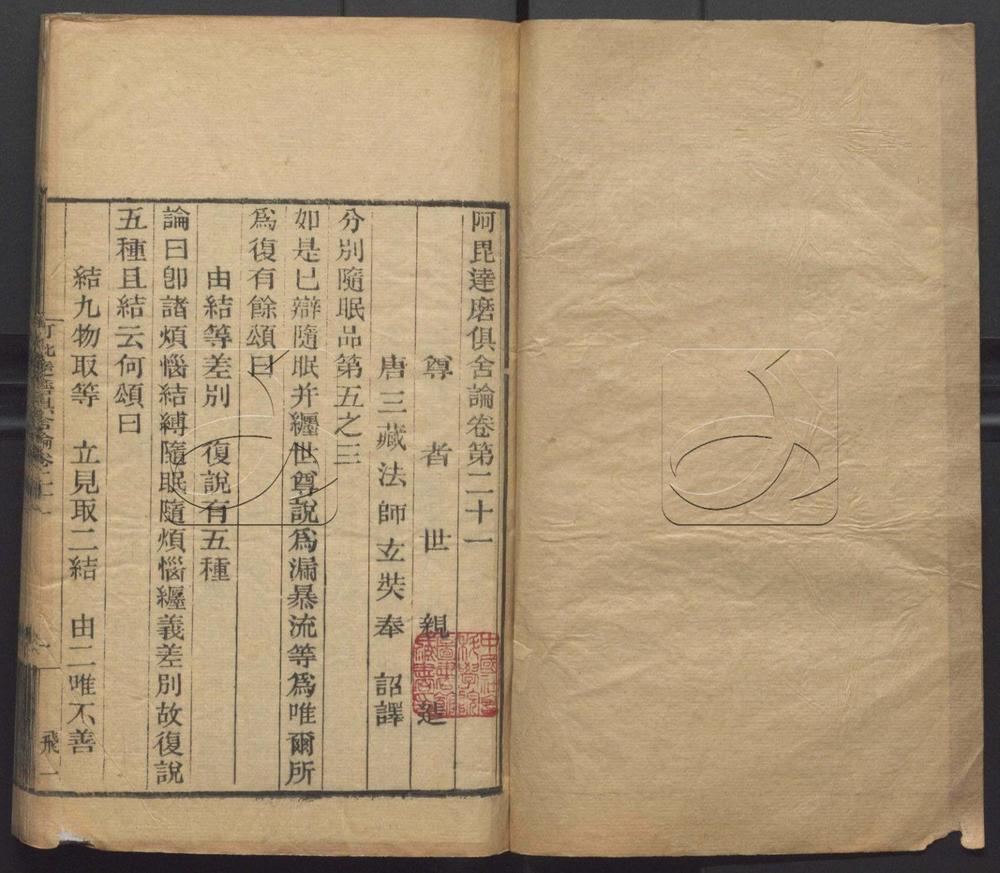 阿毘達磨俱舍論卷第二十一
尊者世親造
唐三藏法師玄奘奉 詔譯
分別隨眠品第五之三
如是已辯隨眠并纏世尊說爲漏暴流等爲唯爾所
爲復有餘頌曰
由結等差別 復說有五種
論曰卽諸煩惱結縛隨眠隨煩惱纏義差別故復說
五種且結云何頌曰
結九物取等 立見取二結 由二唯不善
阿毗達磨俱舍論卷二十一
一
飛一